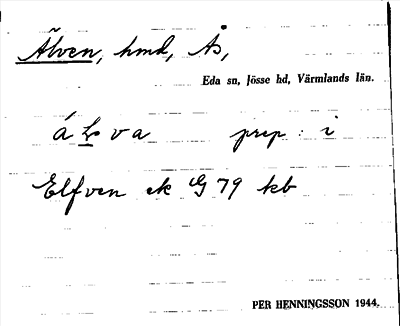 Älven, hmd, Ås,
Eda sn, Jösse hd, Värmlands län.
á L v a prep: i
Elfven ek G 79 kb
PER HENNINGSSON 1944.